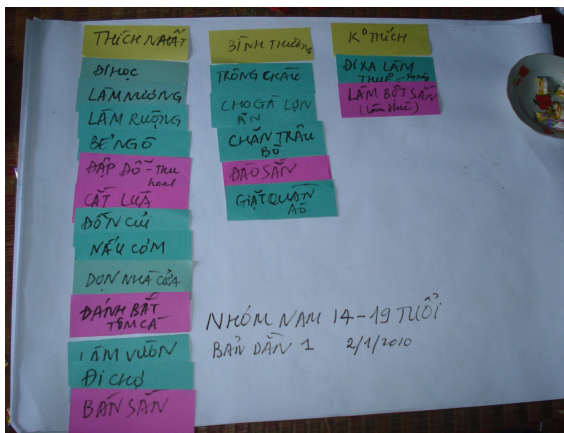 THÍCH NHẤT
ĐI HỌC
LÀM NƯƠNG
LÀM RUỘNG
BẺ NGÔ
ĐẬP ĐỖ - THU
CẮT LUÁ
ĐỐN CỦI
NẤU CƠM
DỌN NHÀ CỬA
ĐÁNH BẮT
TÔM CÁ
LÀM VƯỜN
ĐI CHỢ
BÁN SẮN
BÌNH THƯỜNG
TRÔNG CHÁU
CHO GÀ LỢN
ĂN
CHĂN TRÂU
BÒ
ĐÀO SẮN
GIẶT QUẦN
ÁO
K° THÍCH
ĐI XA LÀM
THUÊ
LÀM BỘT SẮN
(làm thuê)
NHÓM NAM 14-19 TUỔI
BẢN DẦN 1 2/1/2010